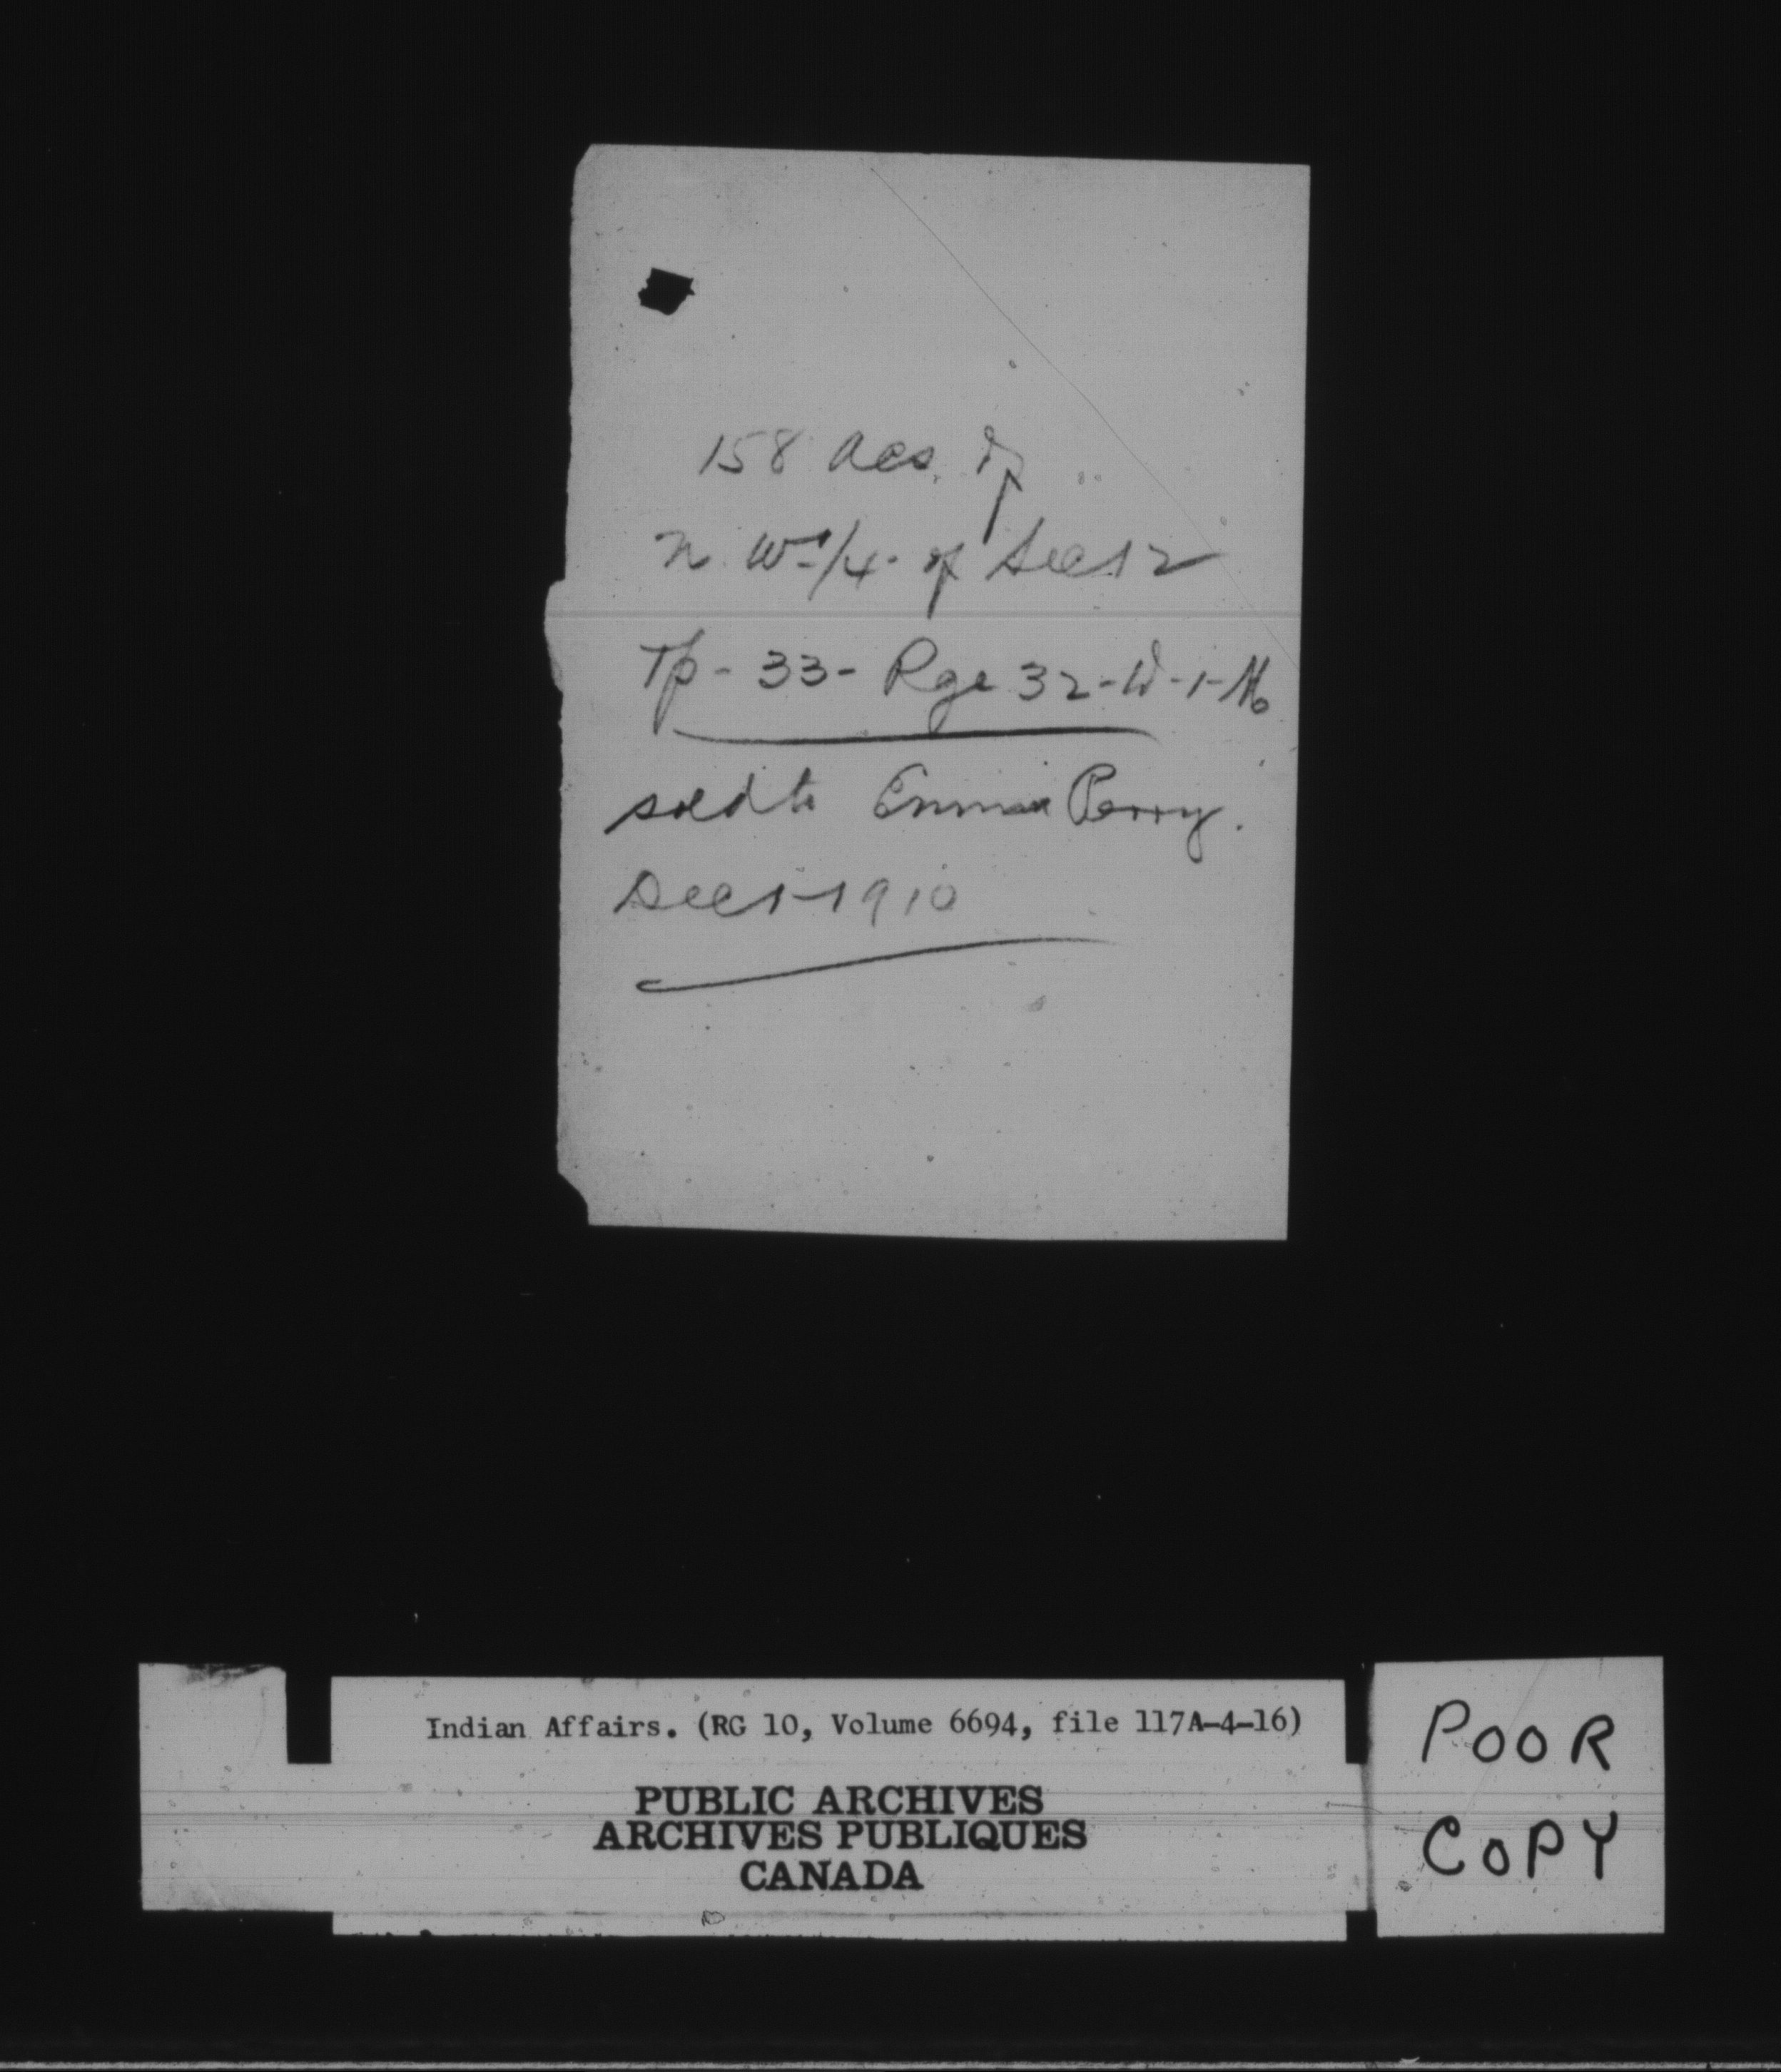 158 acs. of
N. W-1/4- of Sec 12
Tp- 33- Rge 32-W-1-M
sold to Emma Perry.
Dec 1-1910
Indian Affairs. (RG 10, Volume 6694, file 117A-4-16)
PUBLIC ARCHIVES
ARCHIVES PUBLIQUES
CANADA
POOR
COPY